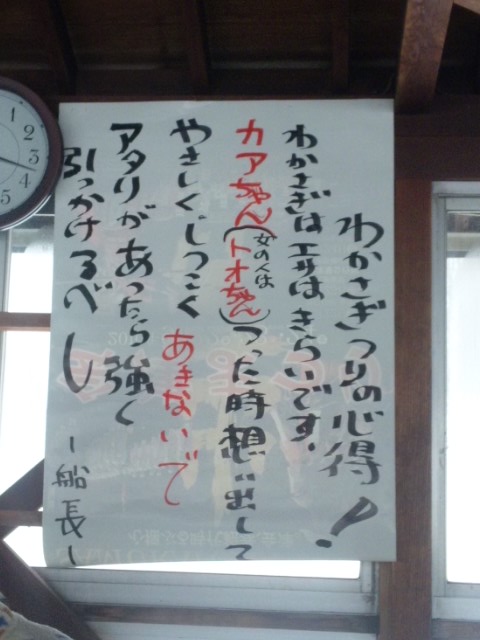 わかさぎつりの心得！
わかさぎはエサはきらいです.
カアちゃん(女の人はトオちゃん)つった時想い出して
やさしく、しつこくあきないで
アタリがあったら強く
引っかけるべし
ー船長ー
1
2
3
4
5